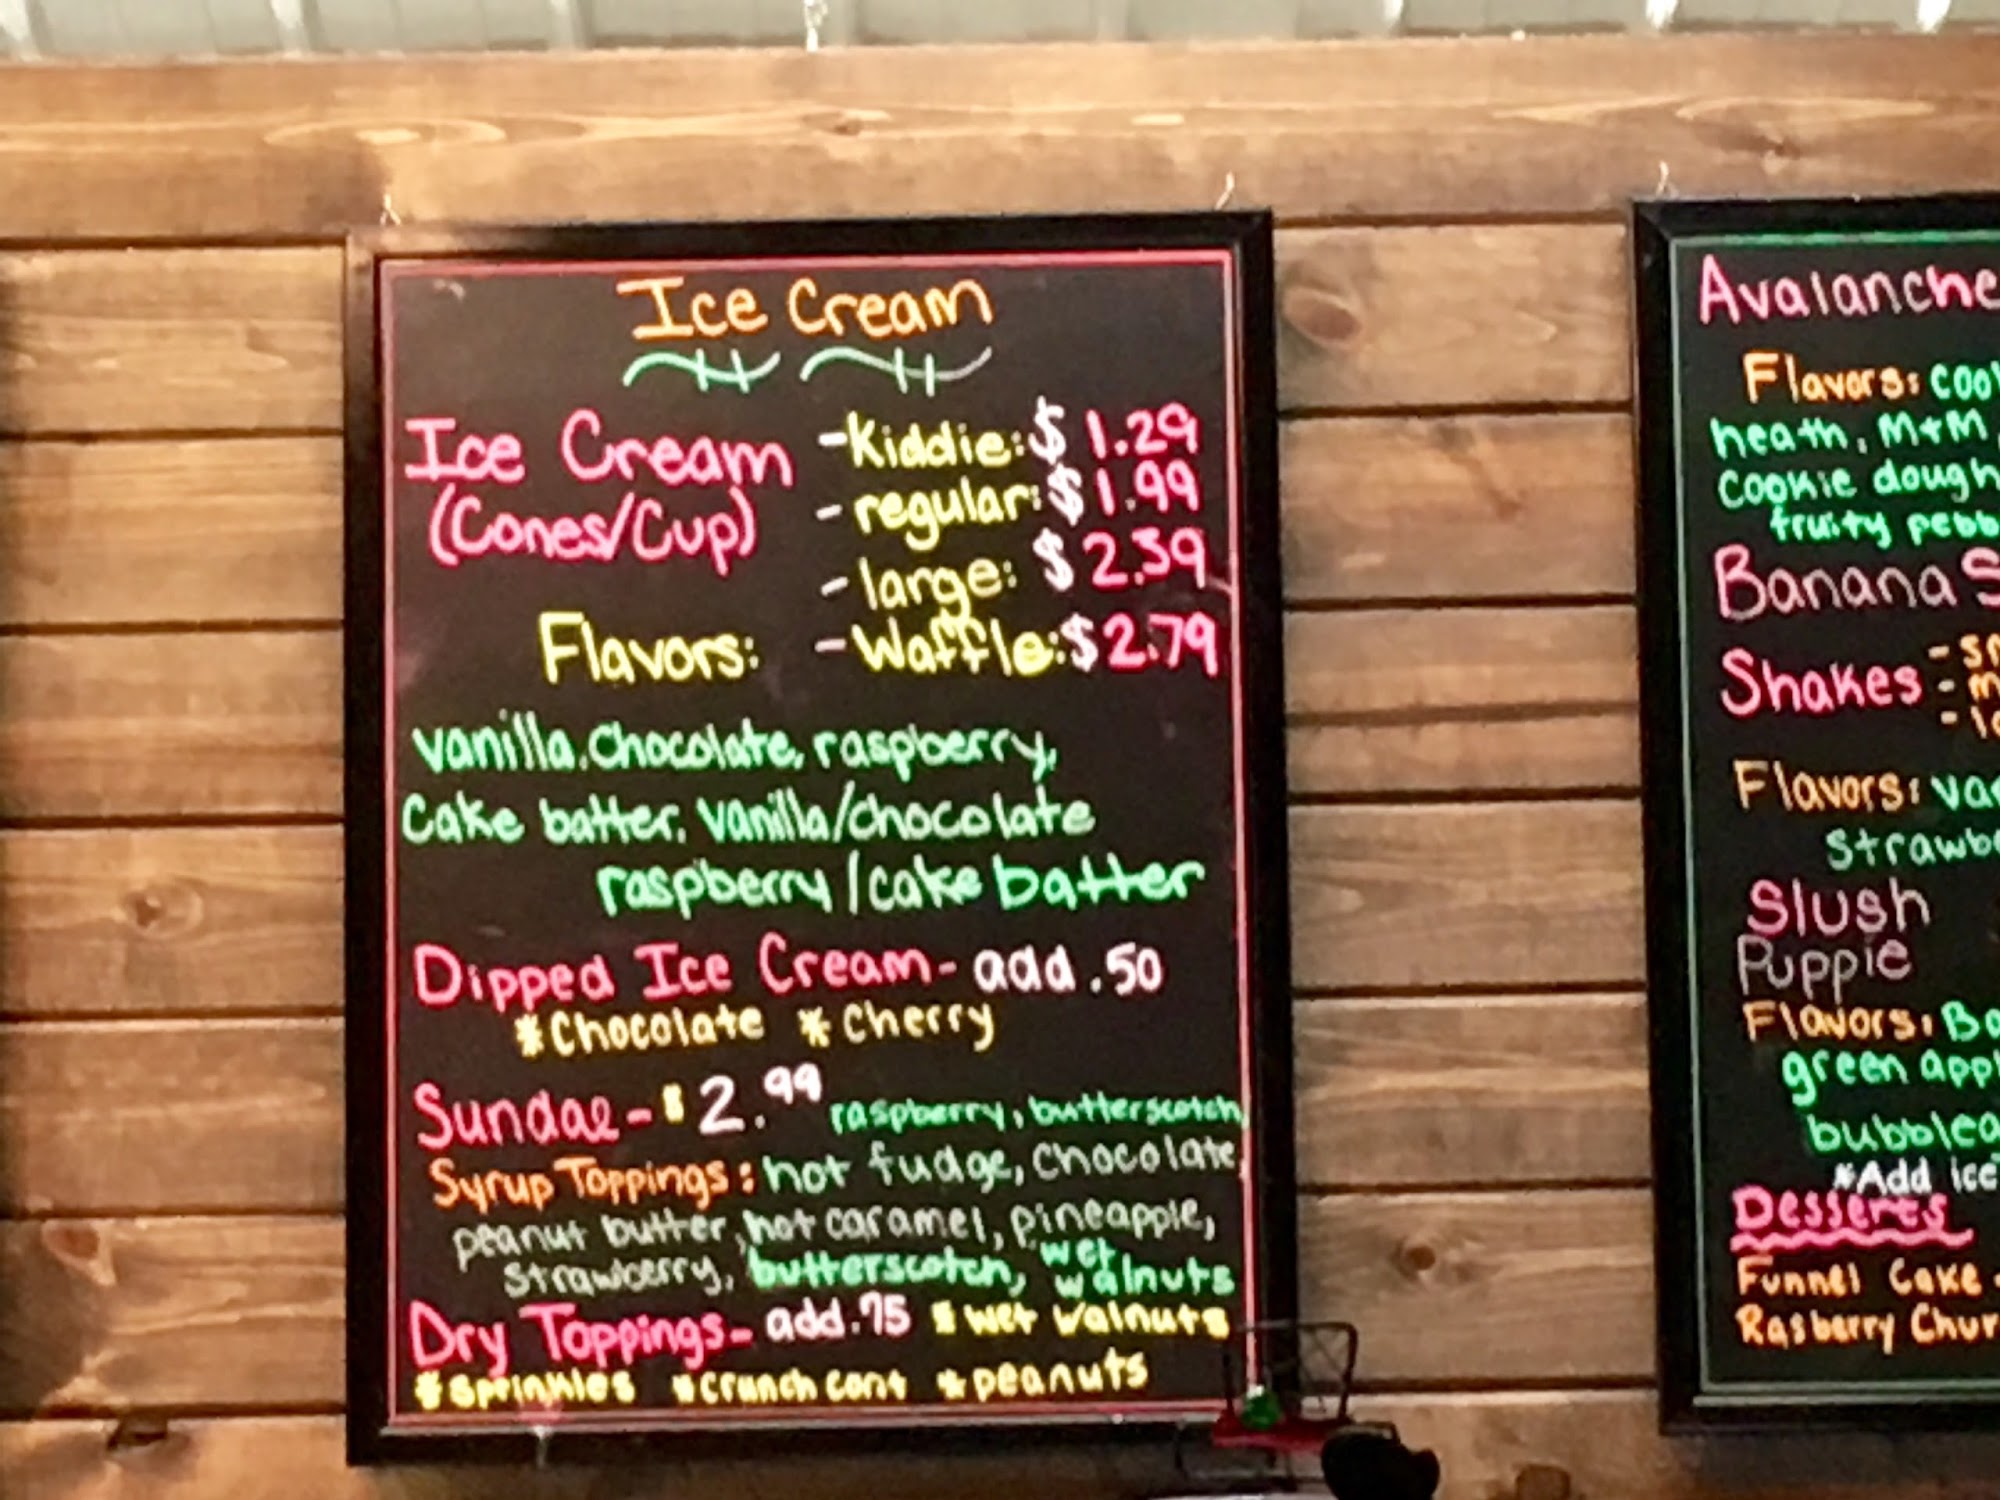 Ice Cream
Ice Cream -Kiddie: $1.29
(Cones/Cup) -regular: $1.99
-large: $2.39
Flavors: -Waffle: $2.79
vanilla, Chocolate, raspberry,
Cake batter, vanilla/chocolate
raspberry/cake batter
Dipped Ice Cream- add .50
*Chocolate *Cherry
Sundae- $2.99 raspberry, butterscotch,
Syrup Toppings: hot fudge, chocolate,
peanut butter, hot caramel, pineapple,
strawberry, butterscotch, wet walnuts
Dry Toppings- add .75 *wet walnuts
*sprinkles *crunch *peanuts
Avalanche
Flavors:
heath, M+M
Cookie dough
fruity
Banana
Shakes
Flavors:
Slush
Puppie
Flavors:
green
*Add ice
Desserts
Funnel Cake
Rasberry